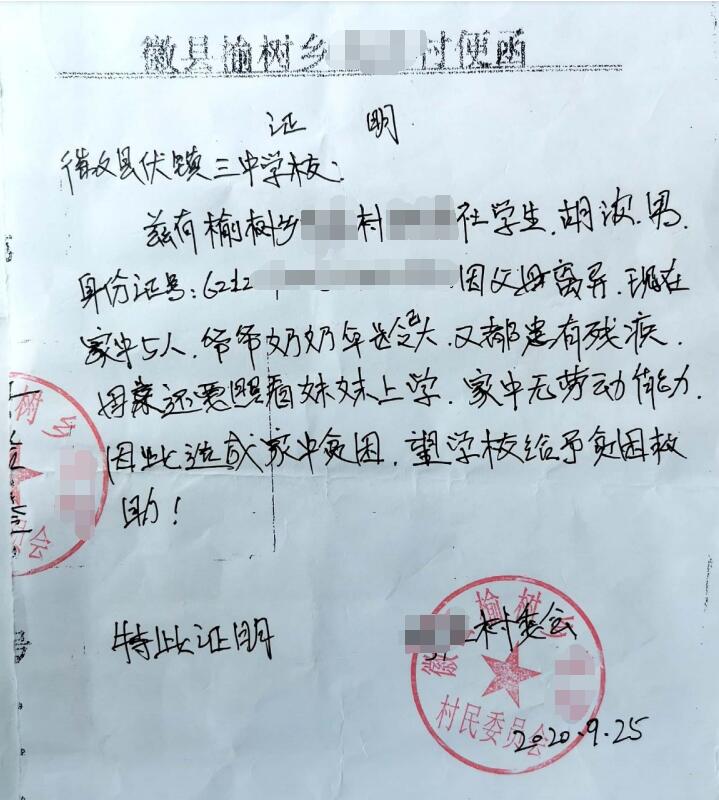 徽县榆树乡 村便函
证 明
徽县伏镇三中学校:
兹有榆树乡 村 社学生.胡波.男.
身份证号:6212 因父母离异.现在
家中5人.爷爷奶奶年龄大.又都患有残疾.
母亲还要照看妹妹上学.家中无劳动能力.
因此造成家中贫困.望学校给予贫困救
助!
特此证明
村委会
2020.9.25
徽县榆树乡
村民委员会
树乡
员会